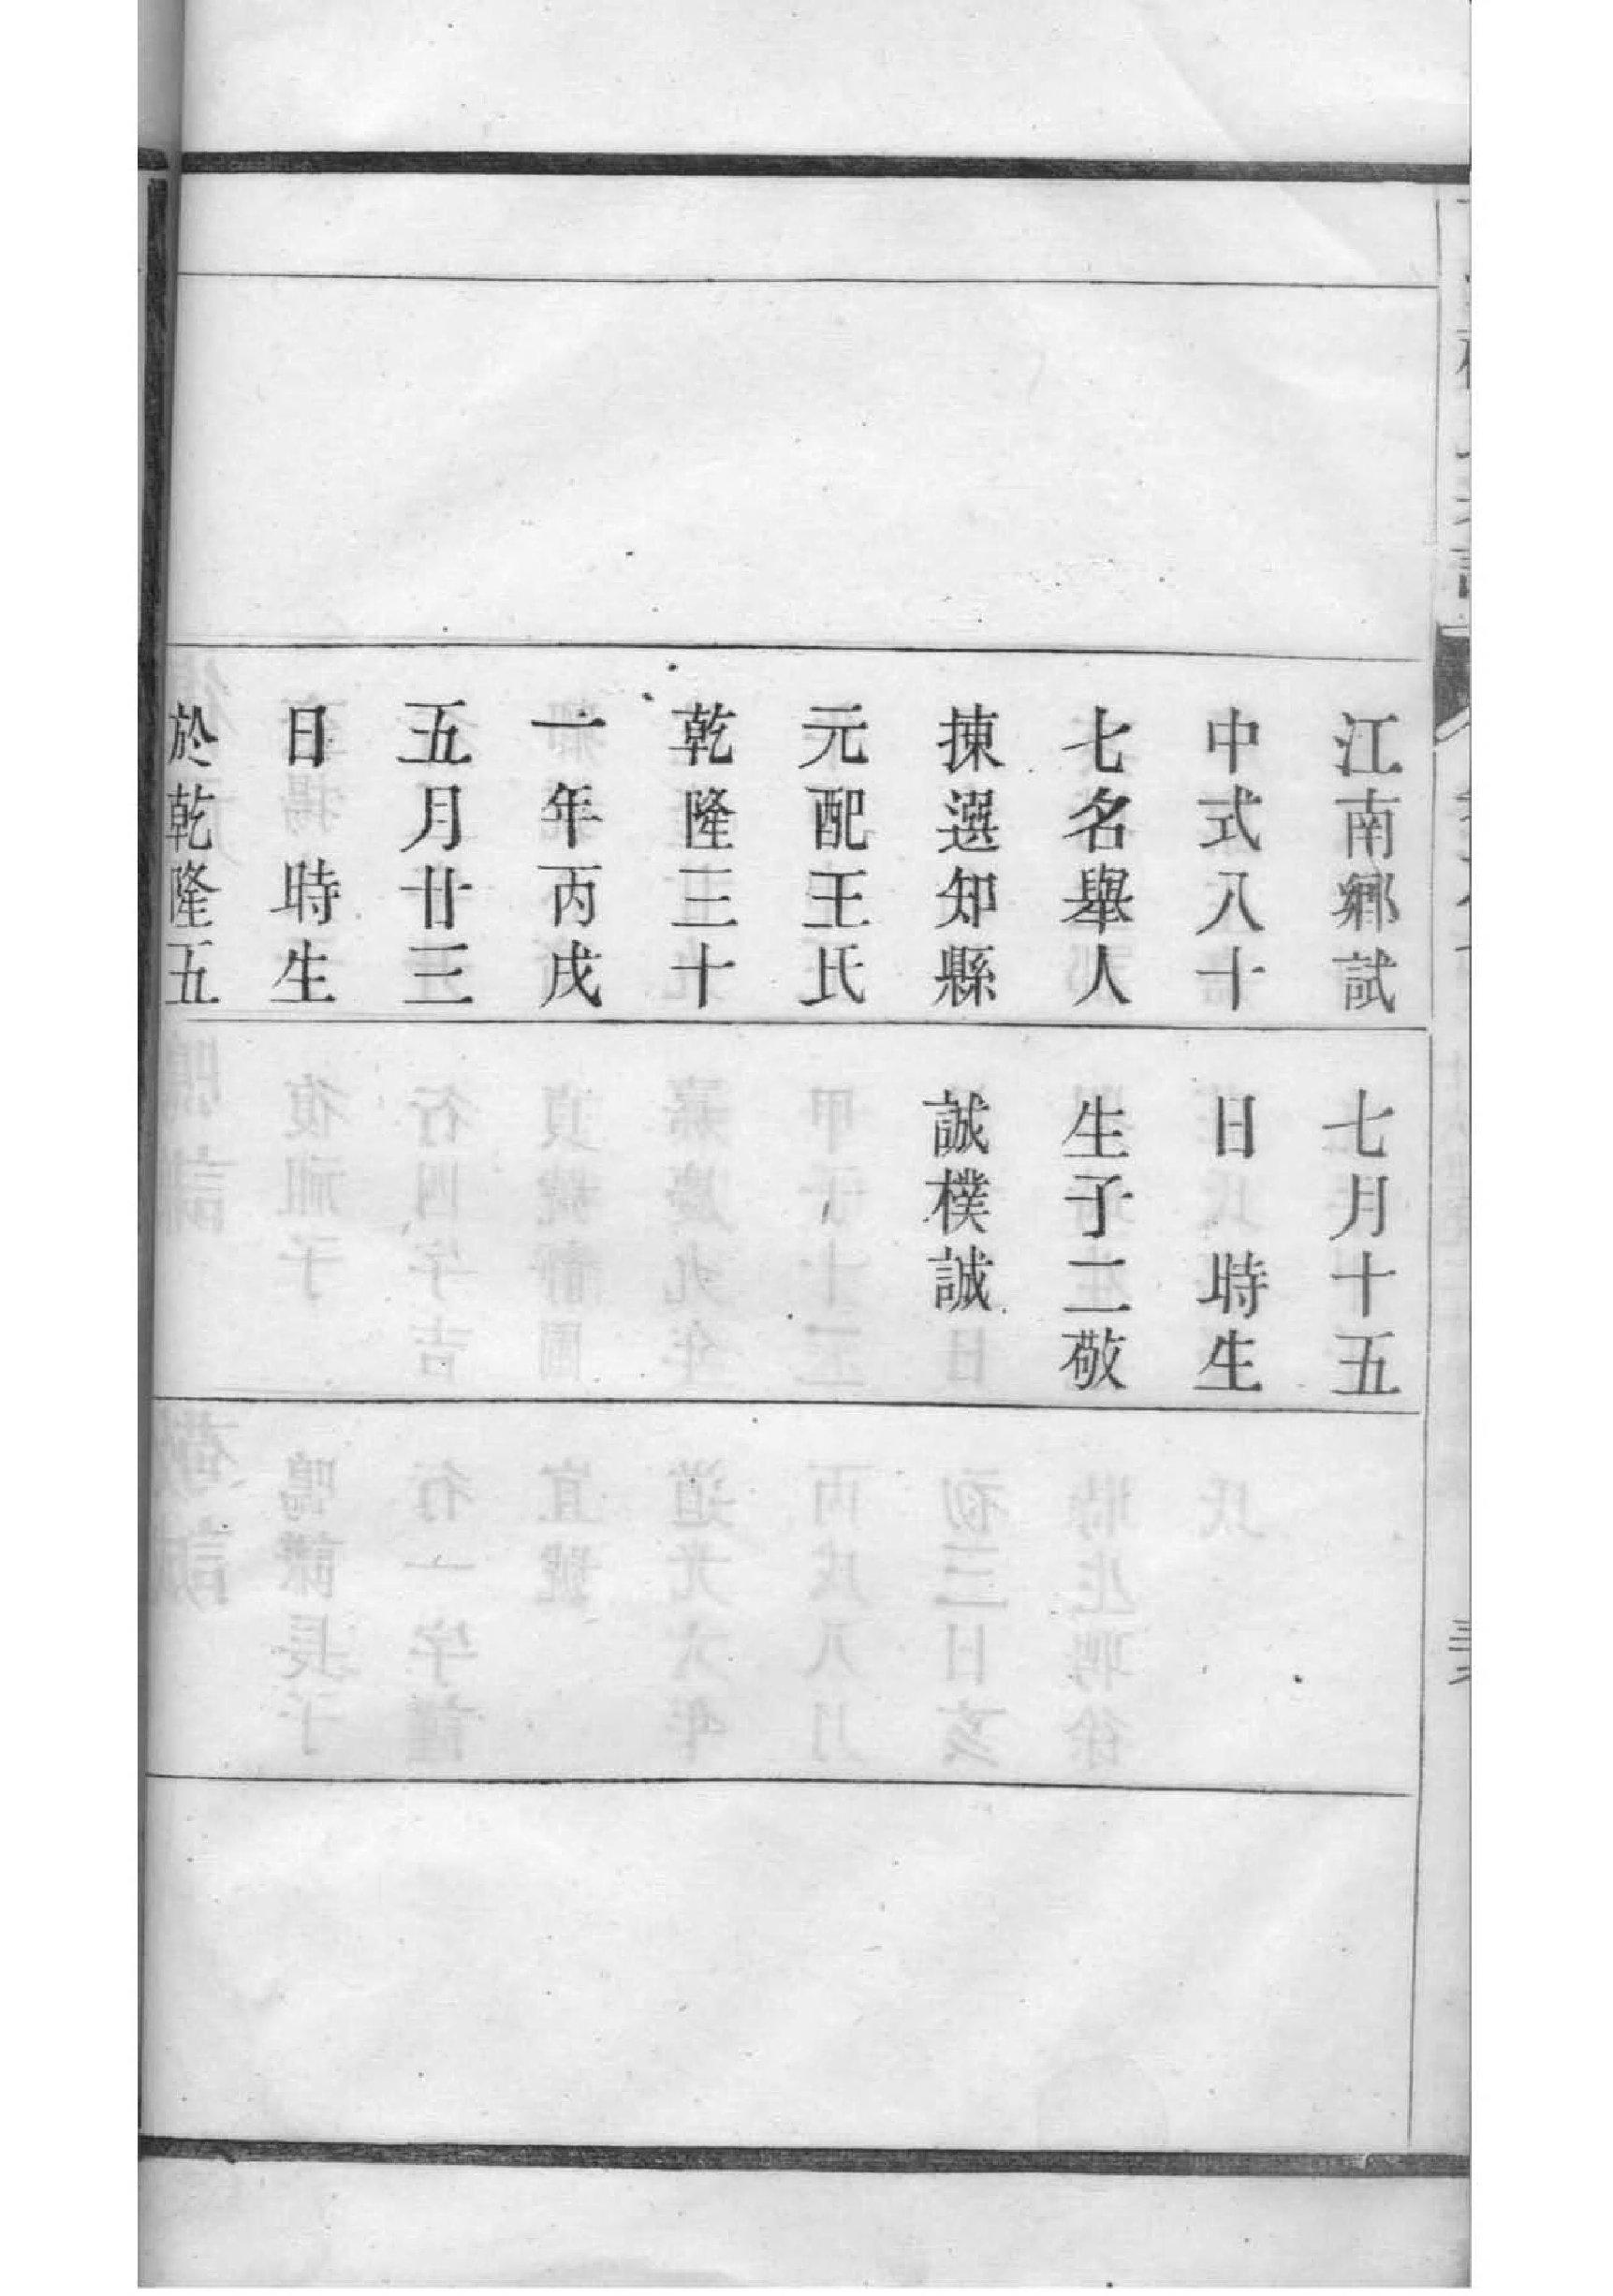 江南鄉試
中式八十
七名舉人
揀選知縣
元配王氏
乾隆三十
一年丙戌
五月廿三
日 時生
於乾隆五
七月十五
日 時生
生子二敬
誠樸誠